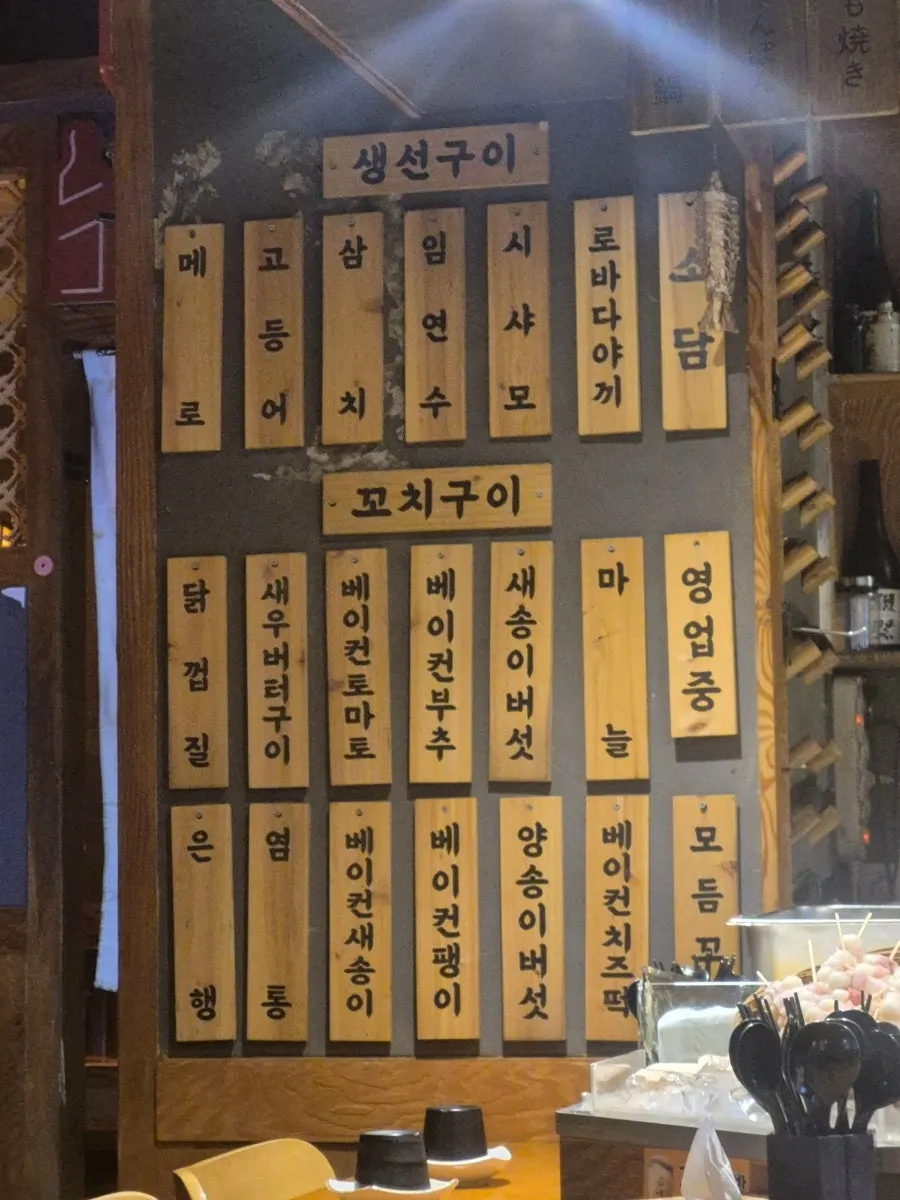 생선구이
메로
고등어
삼치
임연수
시샤모
로바다야끼
소담
꼬치구이
닭껍질
새우버터구이
베이컨토마토
베이컨부추
새송이버섯
마늘
영업중
은행
염통
베이컨새송이
베이컨팽이
양송이버섯
베이컨치즈떡
모듬꼬
も焼き